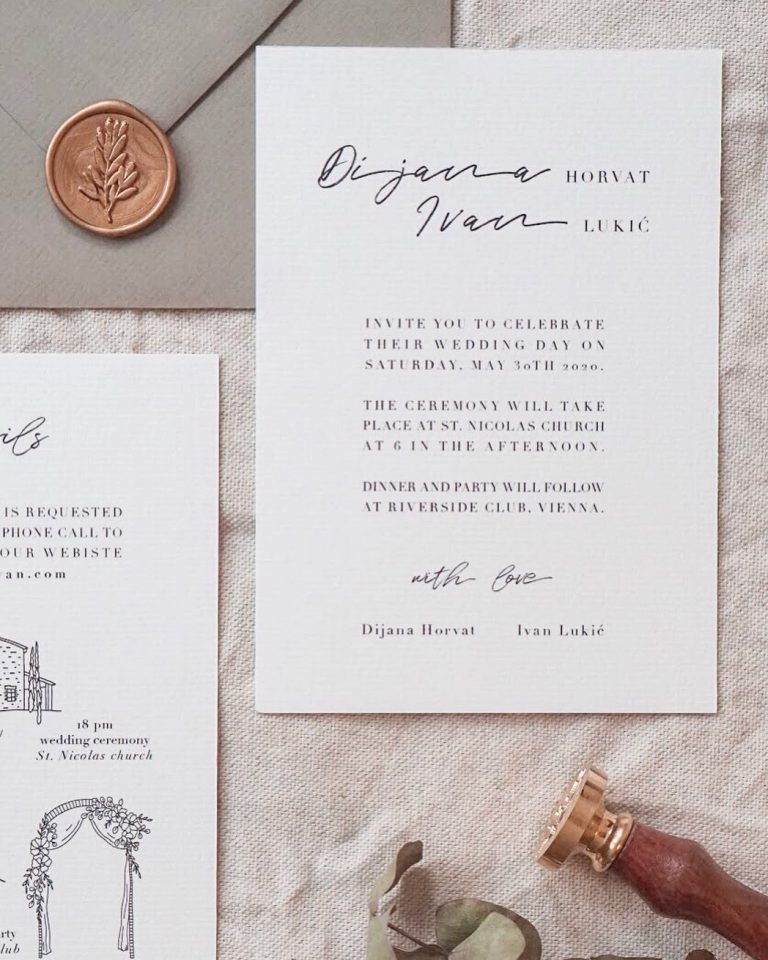 Dijana HORVAT
Ivan LUKIĆ
INVITE YOU TO CELEBRATE
THEIR WEDDING DAY ON
SATURDAY, MAY 30TH 2020.
THE CEREMONY WILL TAKE
PLACE AT ST. NICOLAS CHURCH
AT 6 IN THE AFTERNOON.
DINNER AND PARTY WILL FOLLOW
AT RIVERSIDE CLUB, VIENNA.
with love
Dijana Horvat Ivan Lukić
IS REQUESTED
PHONE CALL TO
OUR WEBISTE
van.com
18 pm
wedding ceremony
St. Nicolas church